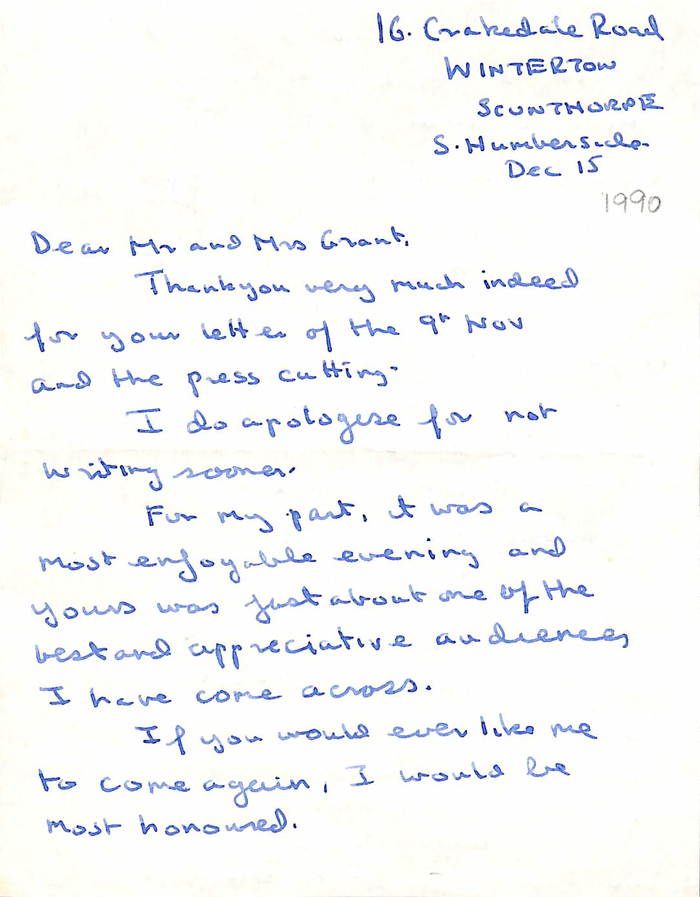 16. Crakedale Road
WINTERTON
SCUNTHORPE
S. Humberside
Dec 15
1990
Dear Mr and Mrs Grant,
Thankyou very much indeed
for your letter of the 9th Nov
and the press cutting.
I do apologese for not
writing sooner.
For my part, it was a
most enjoyable evening and
yours was just about one of the
best and appreciative audiences
I have come across.
If you would ever like me
to come again, I would be
most honoured.